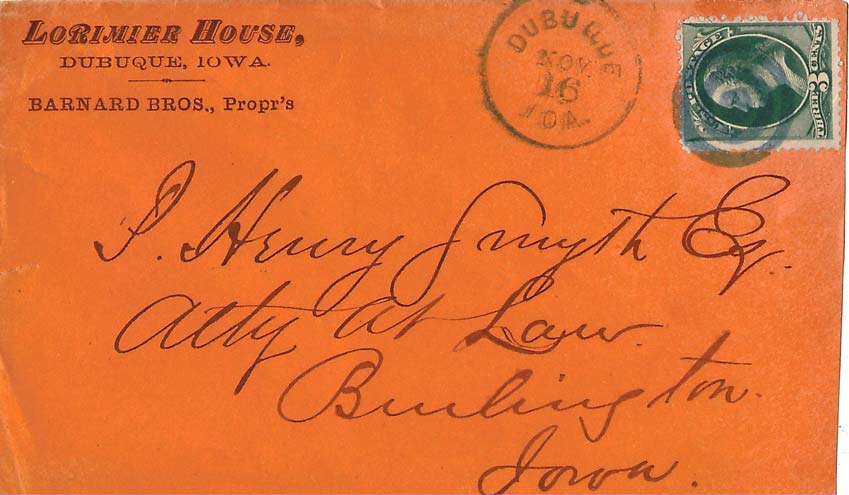 LORIMIER HOUSE,
DUBUQUE, IOWA.
BARNARD BROS., Propr's
DUBUQUE
NOV
16
IOA.
U.S. POSTAGE
THREE 3 CENTS
J. Henry Smyth Esq.
Atty At Law.
Burlington.
Iowa.